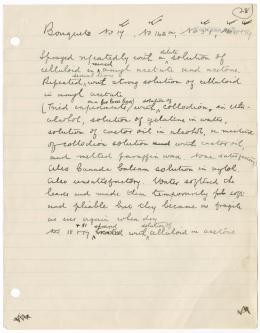 (28)
Bouquets No 7, No 16
Sprayed repeatedly with a dilute solution of
celluloid in amyl acetate and acetone.
Repeated with strong solution of celluloid
in amyl acetate
(Tried experiments with collodion, in
alcohol, solution of gelatine in water,
solution of castor oil in alcohol, a mixture
of collodion solution with castor oil,
and melted paraffin wax. None satisfying
Also Canada balsam solution in xylol
Also unsatisfactory. Water softened the
leaves and made them temporarily soft
and pliable but they became as fragile
as ever again when dry
No 18 with solution of celluloid in acetone